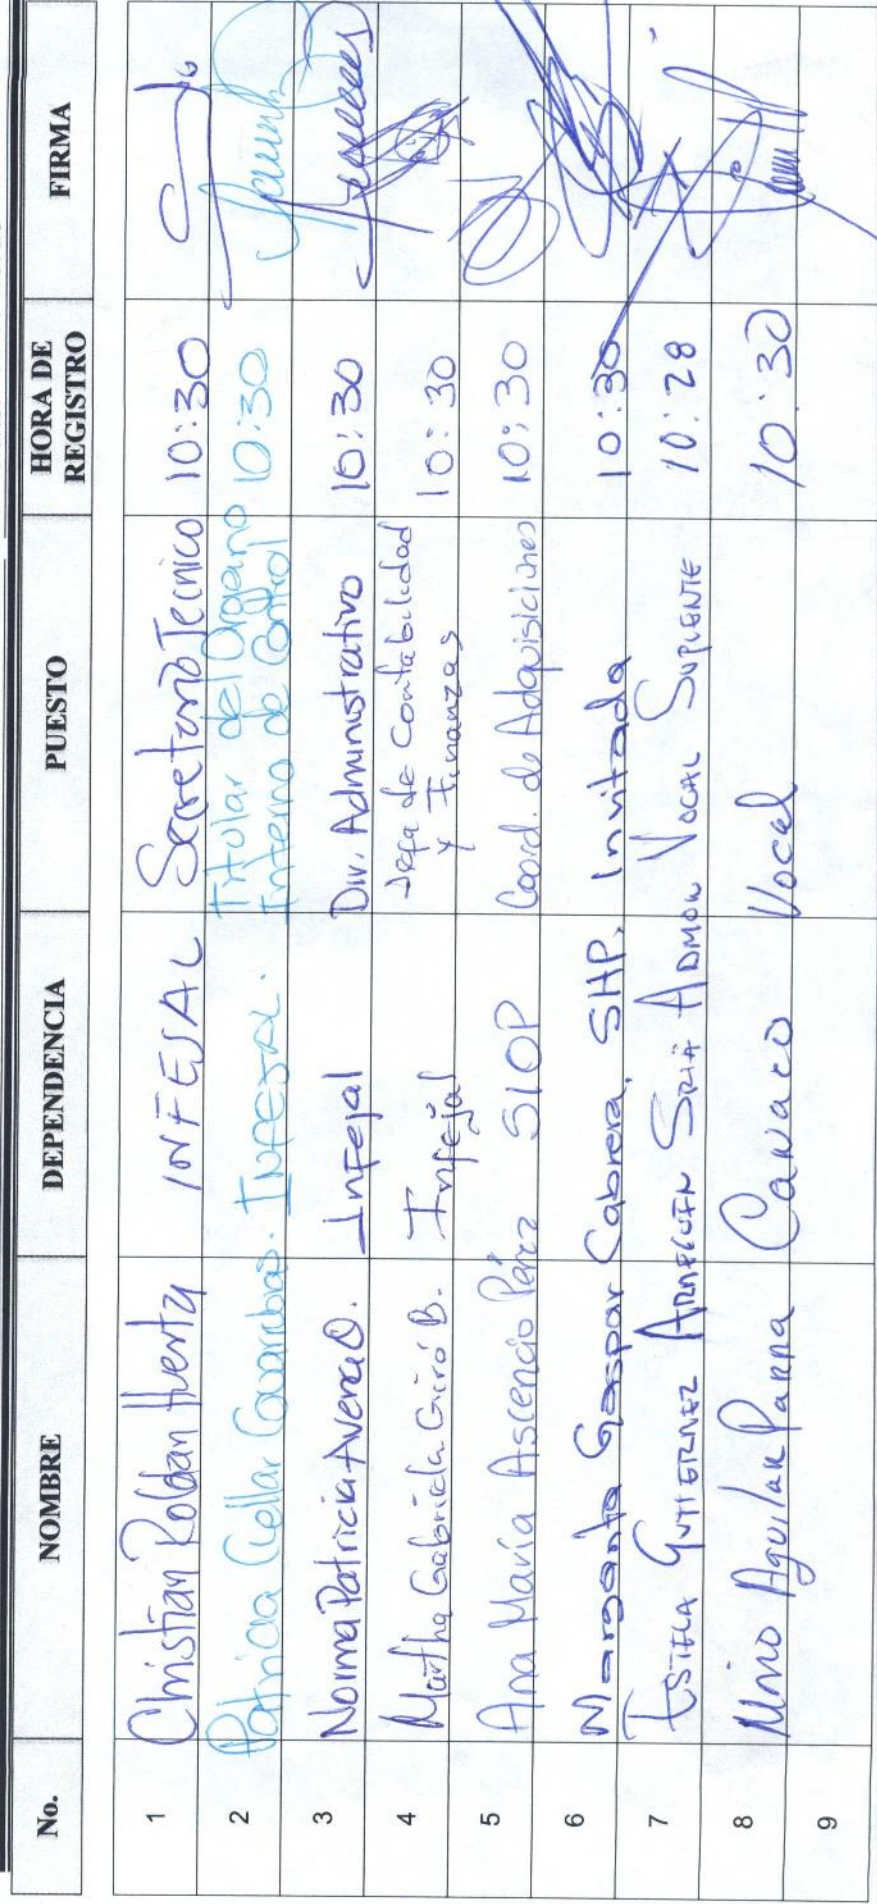 No. NOMBRE DEPENDENCIA PUESTO HORA DE REGISTRO FIRMA
1 Christian Roldan Huerta INFEJAL Secretario Tecnico 10:30
2 Patricia Cuellar Covarrubias. INFEJAL. Titular del Organo Interno de Control 10:30
3 Norma Patricia Avena O. Infejal Div. Administrativo 10:30
4 Martha Gabriela Giró B. Infejal Jefa de Contabilidad y Finanzas 10:30
5 Ana María Ascencio Pérez SIOP Coord. de Adquisiciones 10:30
6 Margarita Gaspar Cabrera. SHP. Invitada 10:30
7 GUTIERREZ SRIA ADMON VOCAL SUPLENTE 10:28
8 Aguilar Parra Canaco Vocal 10:30
9